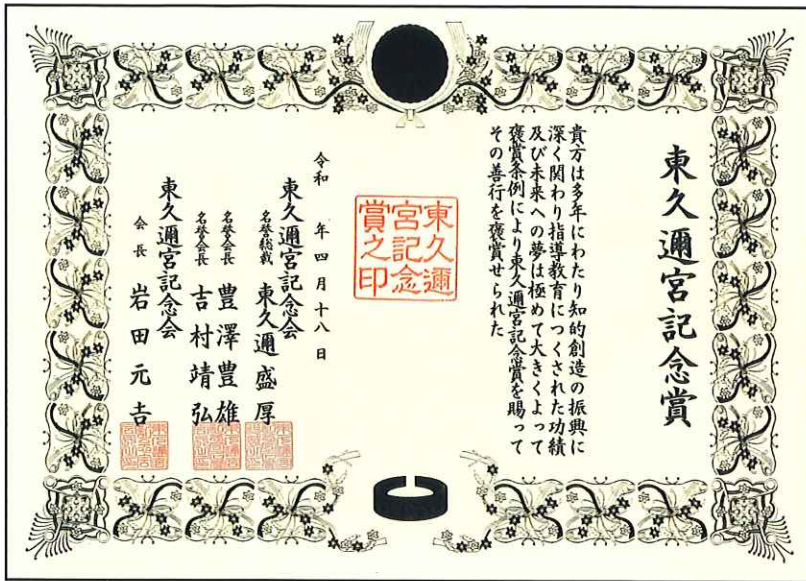 東久邇宮記念賞
貴方は多年にわたり知的創造の振興に
深く関わり指導教育につくされた功績
及び未来への夢は極めて大きくよって
褒賞条例により東久邇宮記念賞を賜って
その善行を褒賞せられた
東久邇
宮記念
賞之印
令和　年四月十八日
東久邇宮記念会
名誉総裁 東久邇盛厚
名誉会長 豊澤豊雄
名誉会長 吉村靖弘
東久邇宮記念会
会長 岩田元吉